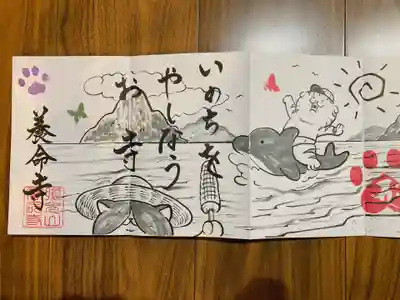 いのちを
やしなう
お寺
養命寺